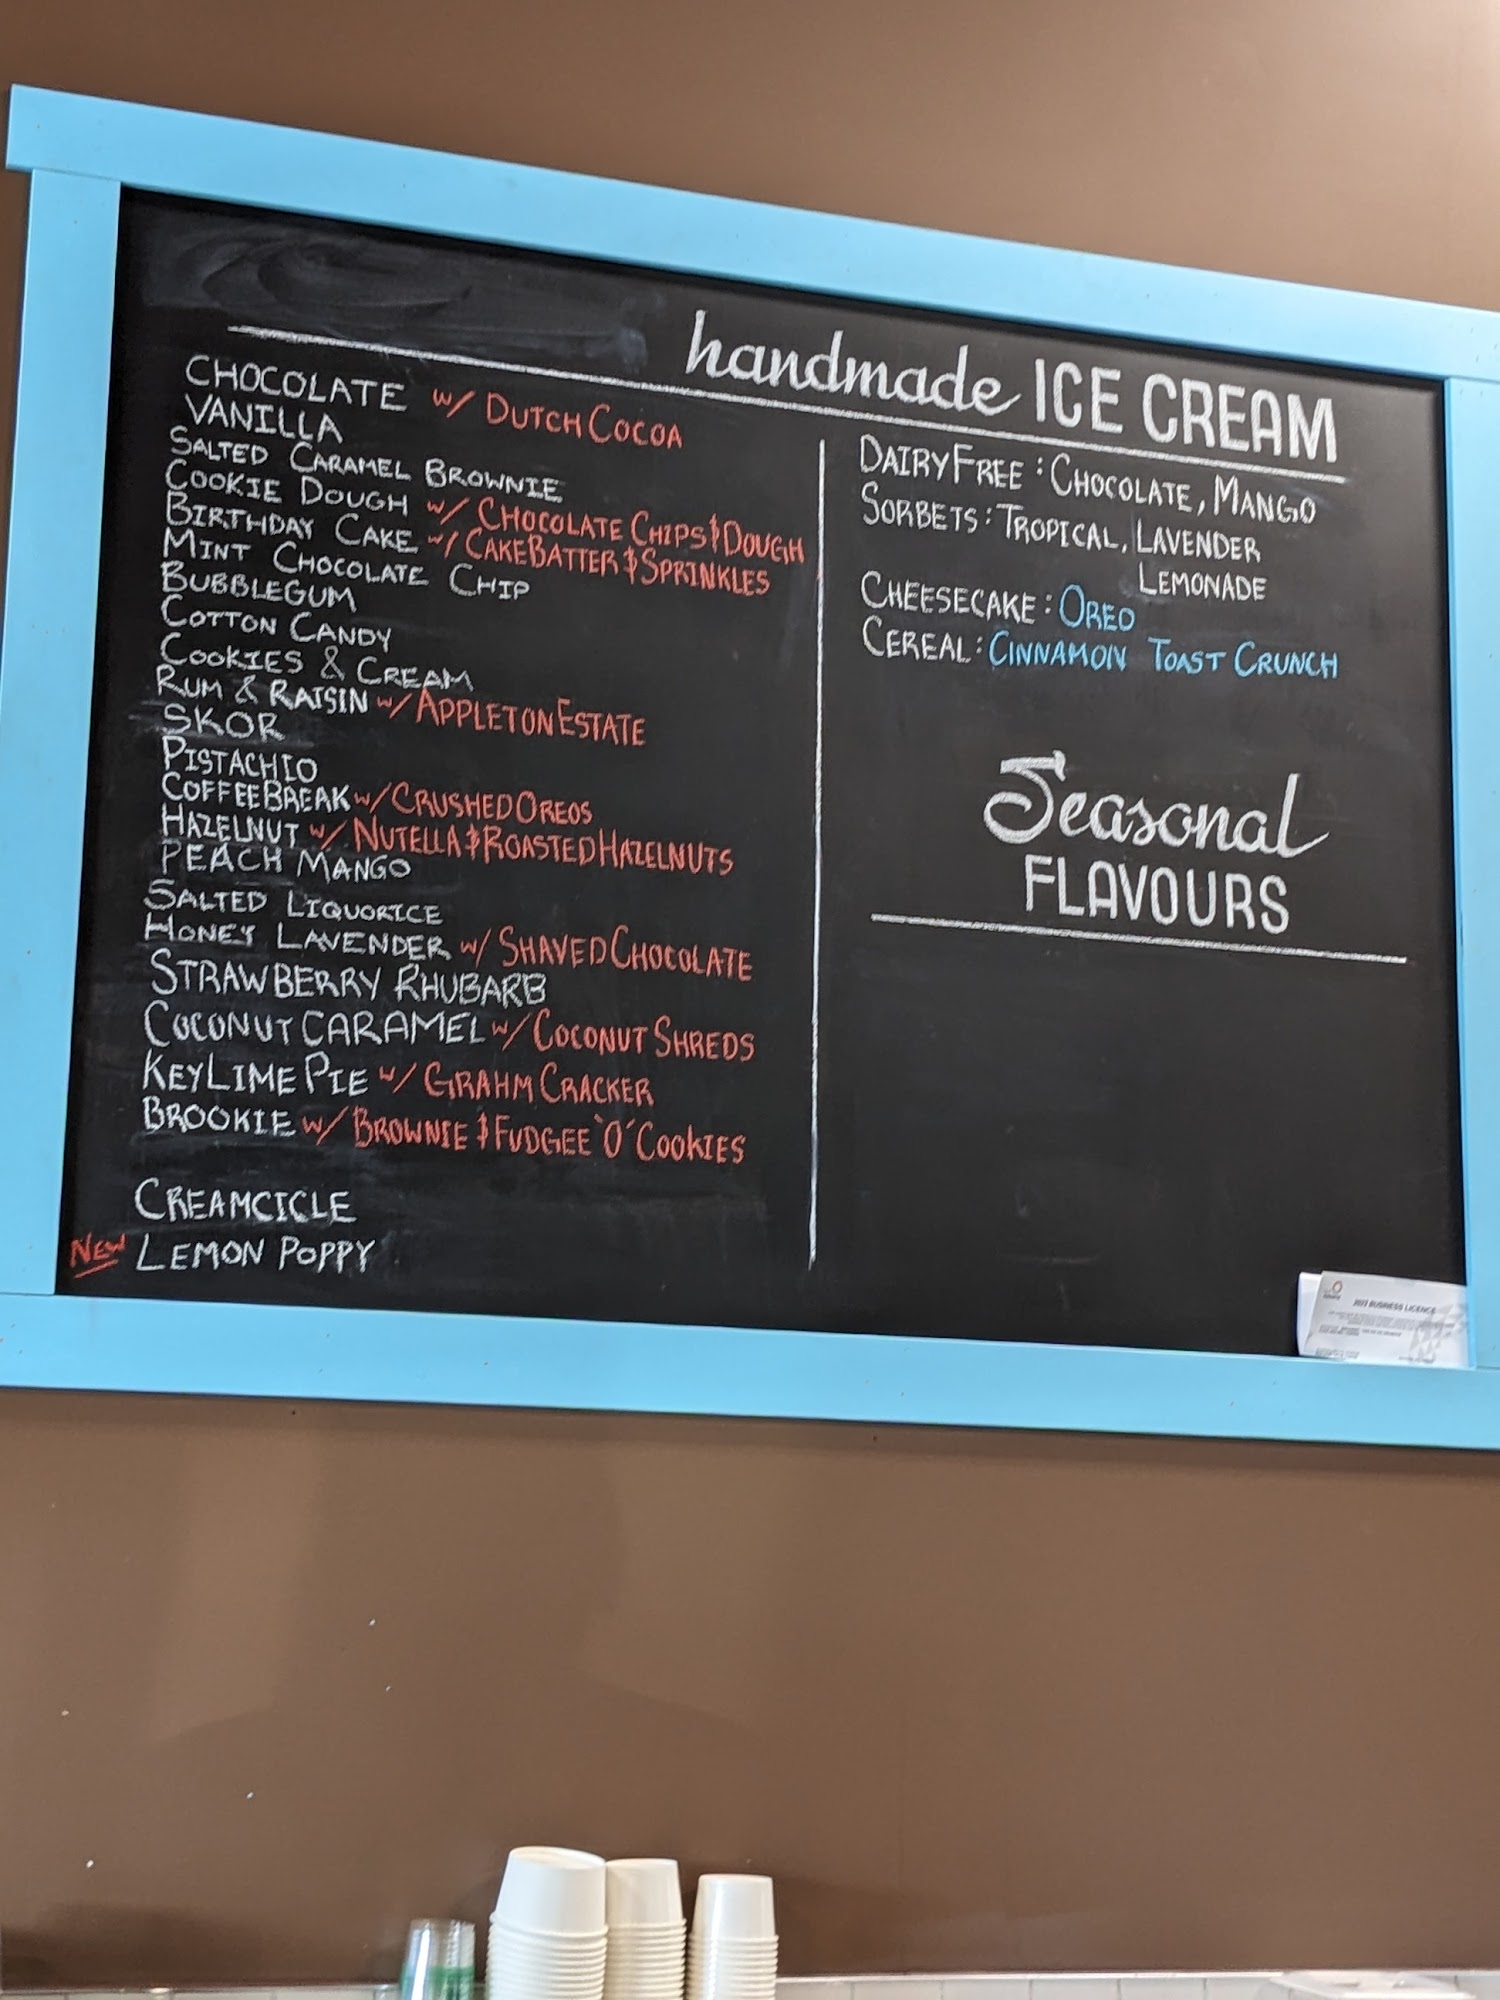 handmade ICE CREAM
CHOCOLATE w/ DUTCH COCOA
VANILLA
SALTED CARAMEL BROWNIE
COOKIE DOUGH w/ CHOCOLATE CHIPS & DOUGH
BIRTHDAY CAKE w/ CAKE BATTER & SPRINKLES
MINT CHOCOLATE CHIP
BUBBLEGUM
COTTON CANDY
COOKIES & CREAM
RUM & RAISIN w/ APPLETON ESTATE
SKOR
PISTACHIO
COFFEE BREAK w/ CRUSHED OREOS
HAZELNUT w/ NUTELLA & ROASTED HAZELNUTS
PEACH MANGO
SALTED LIQUORICE
HONEY LAVENDER w/ SHAVED CHOCOLATE
STRAWBERRY RHUBARB
COCONUT CARAMEL w/ COCONUT SHREDS
KEY LIME PIE w/ GRAHM CRACKER
BROOKIE w/ BROWNIE & FUDGEE 'O' COOKIES
CREAMCICLE
NEW LEMON POPPY
DAIRY FREE : CHOCOLATE, MANGO
SORBETS : TROPICAL, LAVENDER
LEMONADE
CHEESECAKE : OREO
CEREAL : CINNAMON TOAST CRUNCH
Seasonal
FLAVOURS
2023 BUSINESS LICENCE